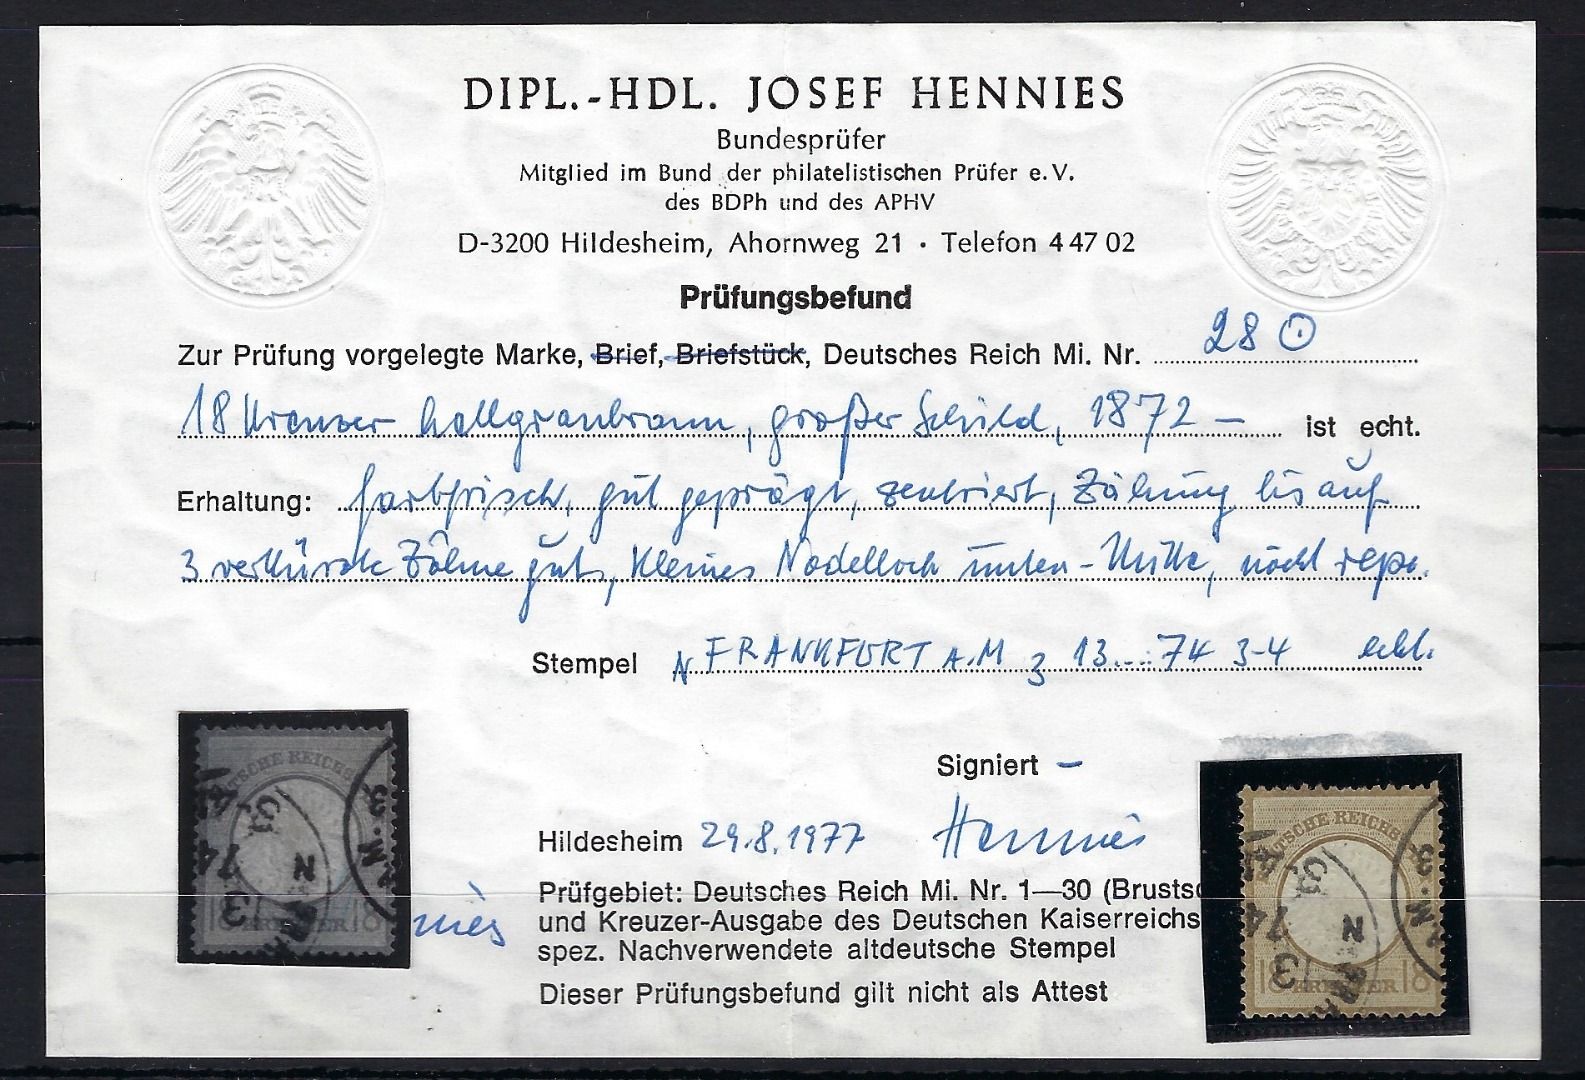 DIPL.-HDL. JOSEF HENNIES
Bundesprüfer
Mitglied im Bund der philatelistischen Prüfer e.V.
des BDPh und des APHV
D-3200 Hildesheim, Ahornweg 21 · Telefon 4 47 02
Prüfungsbefund
Zur Prüfung vorgelegte Marke, Brief, Briefstück, Deutsches Reich Mi. Nr. 28 ⊙
18 Kreuzer hellgraubraun, großer Schild, 1872 – ist echt.
Erhaltung: farbfrisch, gut geprägt, zentriert, Zähnung bis auf
3 verkürzte Zähne gut, kleines Nadelloch unten-Mitte, nicht repa.
Stempel N FRANKFURT A.M 3 13... 74 3-4 echt.
Signiert –
Hildesheim 29.8.1977 Hennies
Prüfgebiet: Deutsches Reich Mi. Nr. 1—30 (Brustsc
und Kreuzer-Ausgabe des Deutschen Kaiserreichs
spez. Nachverwendete altdeutsche Stempel
Dieser Prüfungsbefund gilt nicht als Attest
nies
DEUTSCHE REICHS
3.N.
74
N
13
18 KREUZER 18
DEUTSCHE REICHS
3.N.
74
N
13
18 KREUZER 18